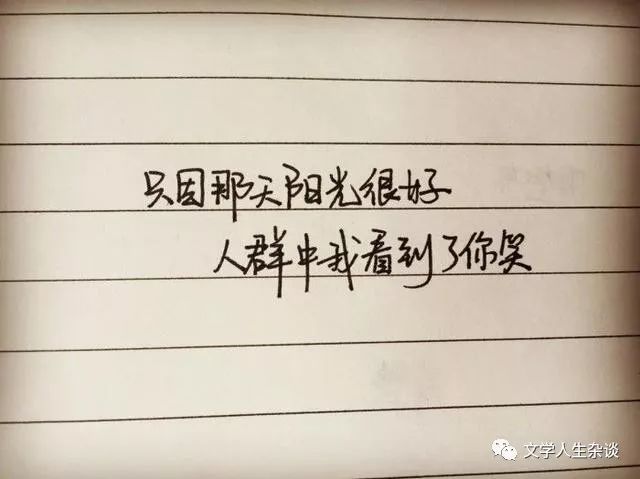 只因那天阳光很好
人群中我看到了你笑
文学人生杂谈